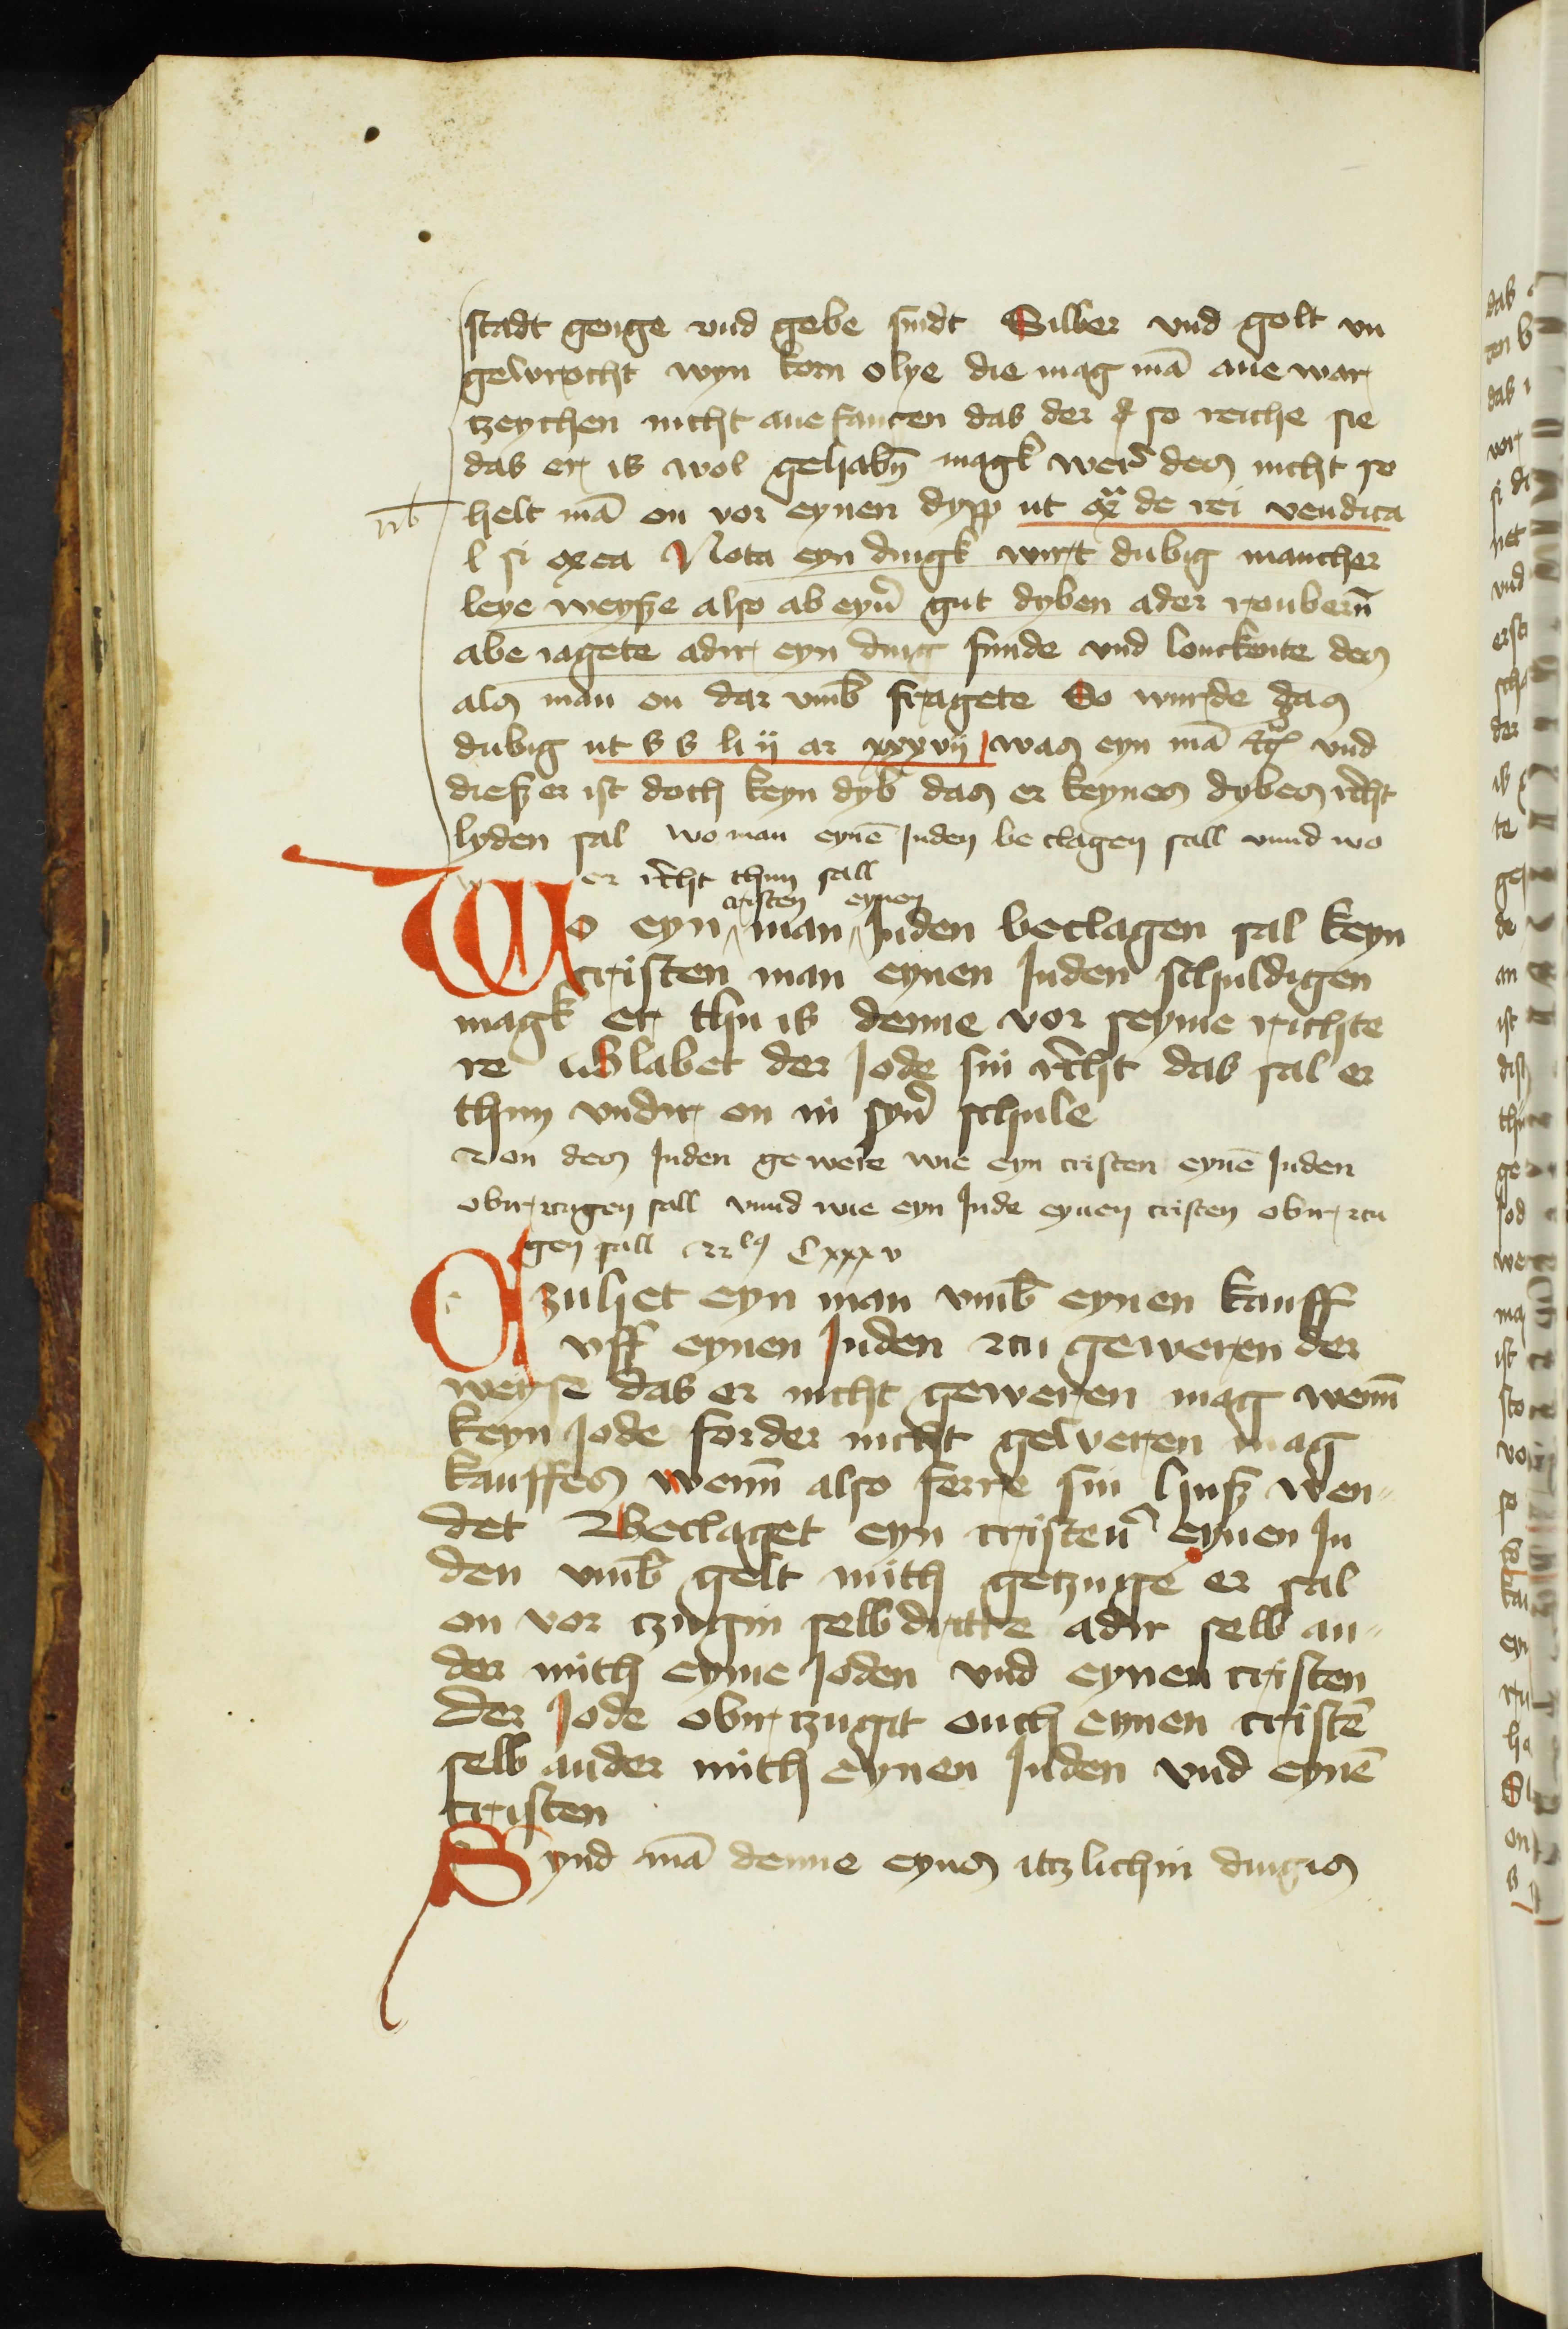 stadt genge vnd gebe sindt Silber vnd golt vn
gewrocht wyn korn olye die mag mā ane war
tzeychen nicht anefancen das der so reiche sie
das er is wol gehabn̄ magk wer des nicht so
nb helt mā on vor eynen dypp ut de rei vendica
l si ex ea Nota eyn dingk wirt dubig mancher
leye weysze also ab eyn̄ gut dyben ader rouberñ
abe iagete adir eyn ding funde vnd louckente des
als man on dar vmb̄ fragete So wurde das
dubig ut s s li ij ar xxxvij was eyn mā vnd
dieszer ist doch keyn dyb das er keynes dybes r̄cht
lyden sal wo man eynē Juden be clagen sall vnnd wo
er r̄cht thun sall
cristen eynen
Wo eyn man Juden beclagen sal keyn
cristen man eynen Juden schuldigen
magk er thu is denne vor seyme richte
re ab labet der Jode sin r̄cht das sal er
thun vndir on in syn̄ schule
Von des Juden gewere wie eyn cristen eynē Juden
obir zcugen sall vnnd wie eyn Jude eynen cristen obir zcu
gen sall Cxxxv
Czuhet eyn man vmb̄ eynen kauff
vff eynen Juden zcu geweren der
weyse das er nicht geweren mag wenn̄
keyn Jode forder nicht geweren mag
kauffes wenn̄ also ferre sin husz wen-
det Beclaget eyn cristen̄ eynen Ju
den vmb̄ gelt mith getzuge er sal
on vor tzugin selbdritte adir selb an-
der mith eyme Joden vnd eynen cristen
der Jode obir tzugit ouch eynen cristē
selb ander mith eynen Juden vnd eynē
cristen
Synd mā denne eyns itzlichin dingis